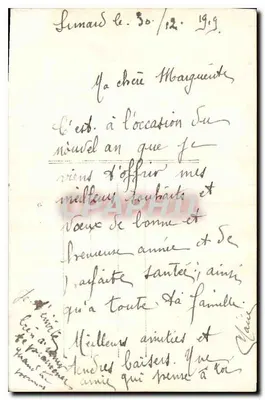 le 30/12. 1919.
Ma chère Marguerite
C'est à l'occasion du
nouvel an que je
viens t'offrir mes
meilleurs souhaits et
vœux de bonne et
heureuse année et de
parfaite santé; ainsi
qu'a toute ta famille.
Meilleurs amitiés et
tendres baisers. Une
amie qui pense à toi